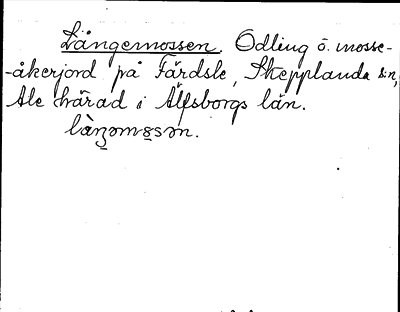 Långemossen. Odling ö. mosse-
-åkerjord på Färdsle, Skepplanda s:n,
Ale härad i Älfsborgs län.